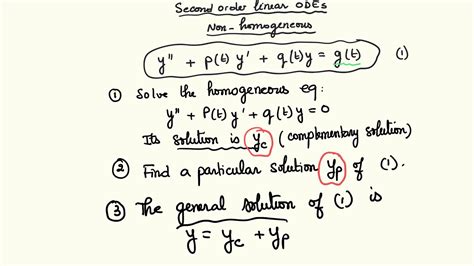 Second order linear ODEs
Non-homogeneous
y" + p(t) y' + q(t)y = g(t) (1)
① Solve the homogeneous eq:
y" + P(t) y' + q(t) y = 0
Its solution is yc (complementary solution)
② Find a particular solution yp of (1).
③ The general solution of (1) is
y = yc + yp